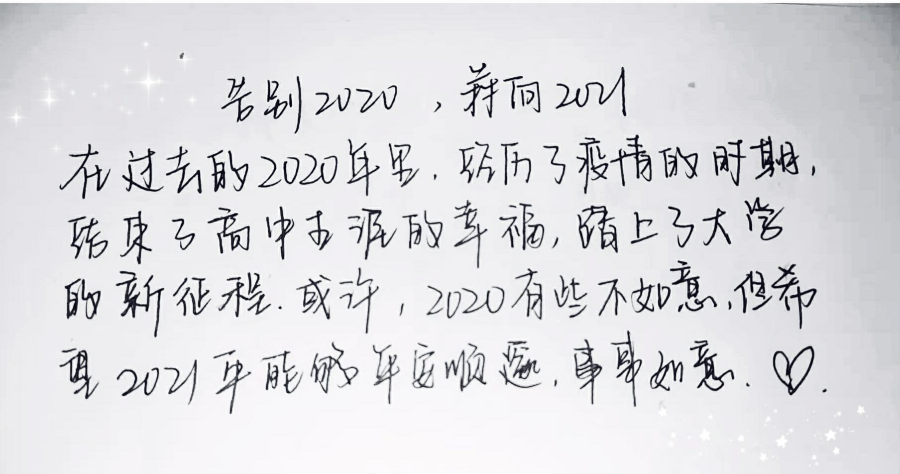 告别2020，向2021
在过去的2020年里，经历了疫情的时期，
结束了高中生涯的幸福，踏上了大学
的新征程。或许，2020有些不如意，但希
望2021年能够平安顺遂，事事如意。♡.